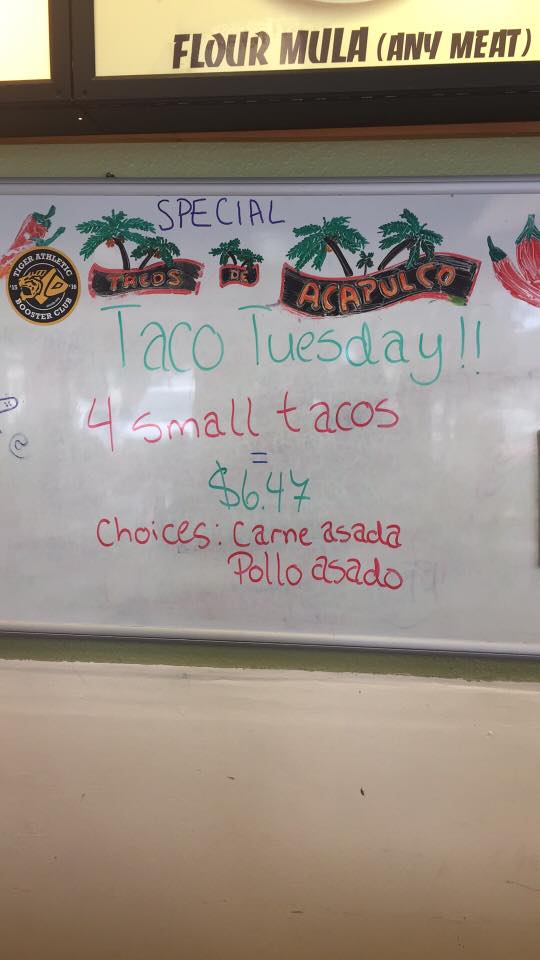 FLOUR MULA (ANY MEAT)
SPECIAL
TIGER ATHLETIC
'15 '16
BOOSTER CLUB
TACOS DE ACAPULCO
Taco Tuesday!!
4 small tacos
=
$6.47
Choices: Carne asada
Pollo asado